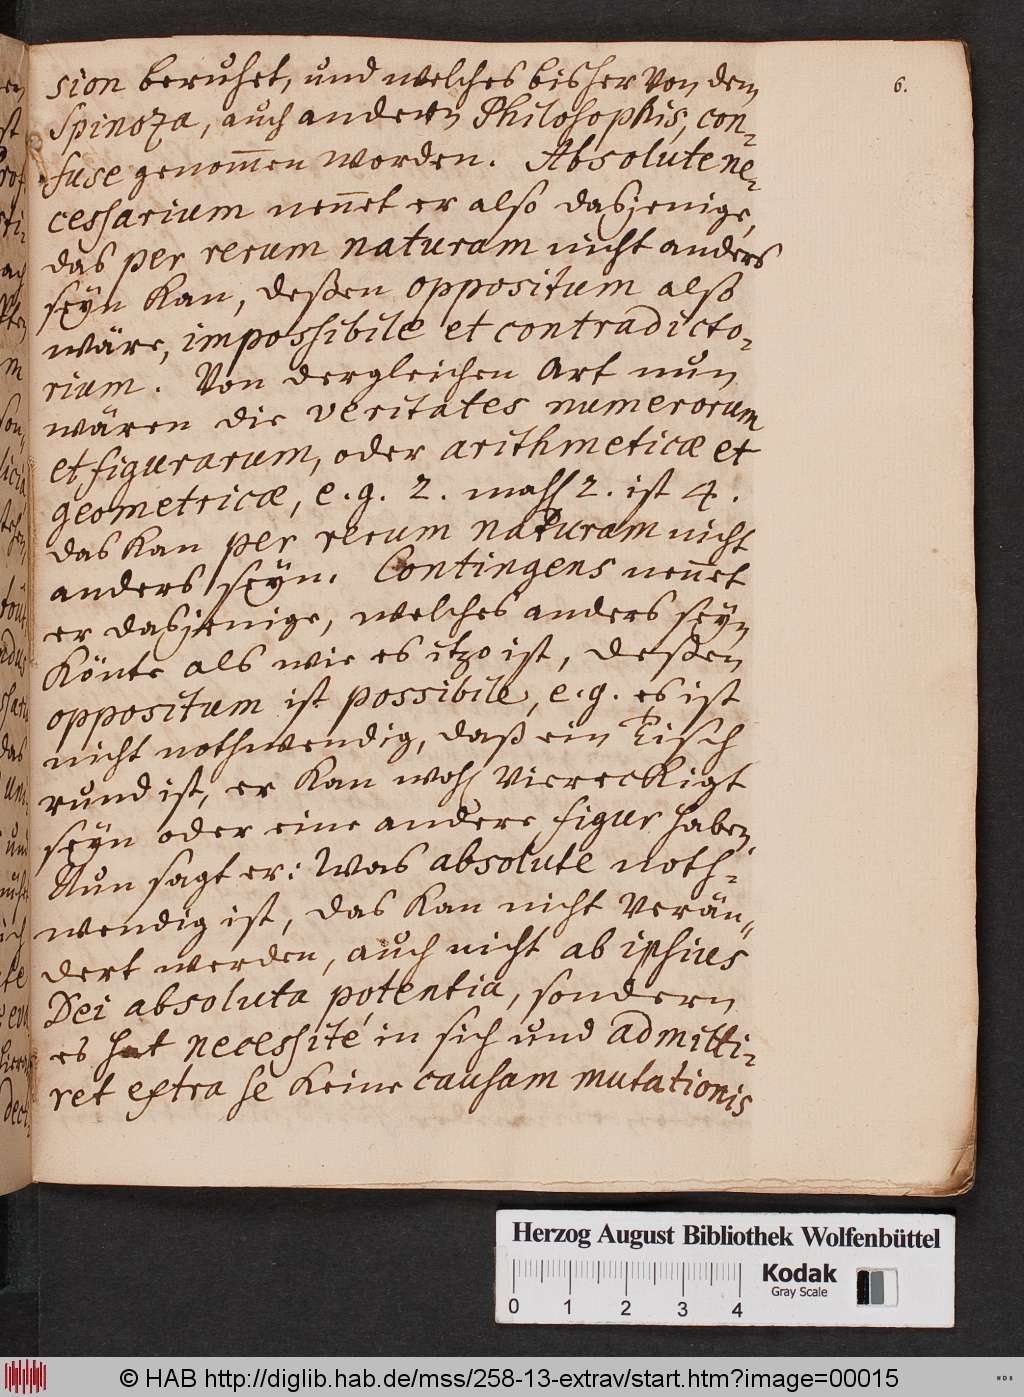 6.
sion beruhet, und welches bisher von dem
Spinoza, auch andern Philosophis, con-
fuse genom̅en worden. Absolute ne-
cessarium nen̅et er also dasjenige,
das per rerum naturam nicht anders
seyn kan, deßen oppositum also
wäre, impossibile et contradicto-
rium. Von dergleichen Art nun
wären die veritates numerorum
et figurarum, oder arithmeticæ et
geometricæ, e. g. 2. mahl 2. ist 4.
das kan per rerum naturam nicht
anders seyn. Contingens nen̅et
er dasjenige, welches anders seyn
könte als wie es itzo ist, deßen
oppositum ist possibile, e. g. es ist
nicht nothwendig, daß ein Tisch
rund ist, er kan wohl viereckigt
seyn oder eine andere figur haben.
Nun sagt er: Was absolute noth-
wendig ist, das kan nicht verän-
dert werden, auch nicht ab ipsius
Dei absoluta potentia, sondern
es hat necessité in sich und admitti-
ret extra se keine causam mutationis
Herzog August Bibliothek Wolfenbüttel
0 1 2 3 4
Kodak
Gray Scale
© HAB http://diglib.hab.de/mss/258-13-extrav/start.htm?image=00015